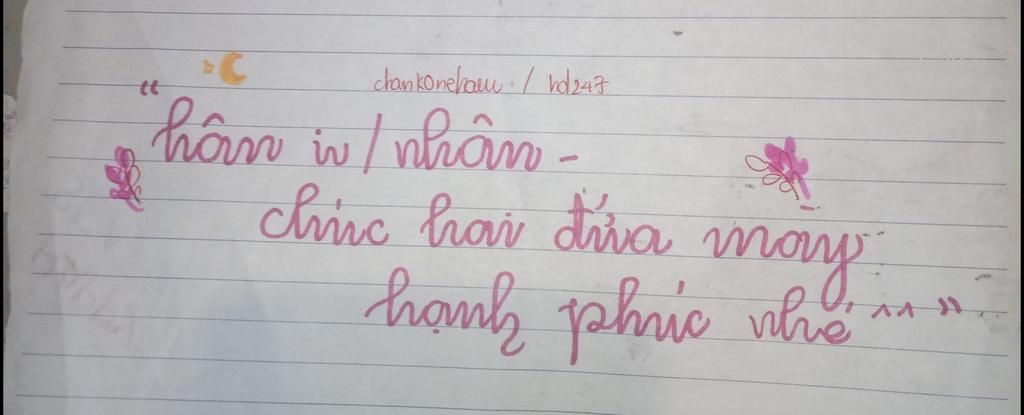 chankonehauu. / hd247
“hôm in / nhôm -
chúc hai đứa mày
hạnh phúc nhé ^^”